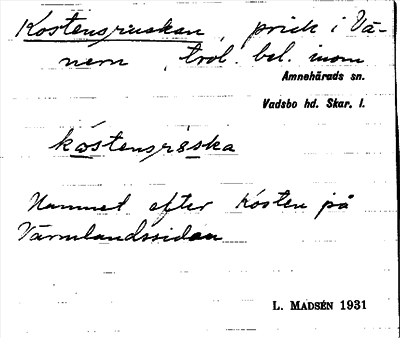 Kostensruskan, prick i Vä-
nern, trol. bel. inom
Amnehärads sn.
Vadsbo hd. Skar. l.
kåstensrɛska
Namnet efter Kosten på
Värmlandssidan
L. MADSÉN 1931